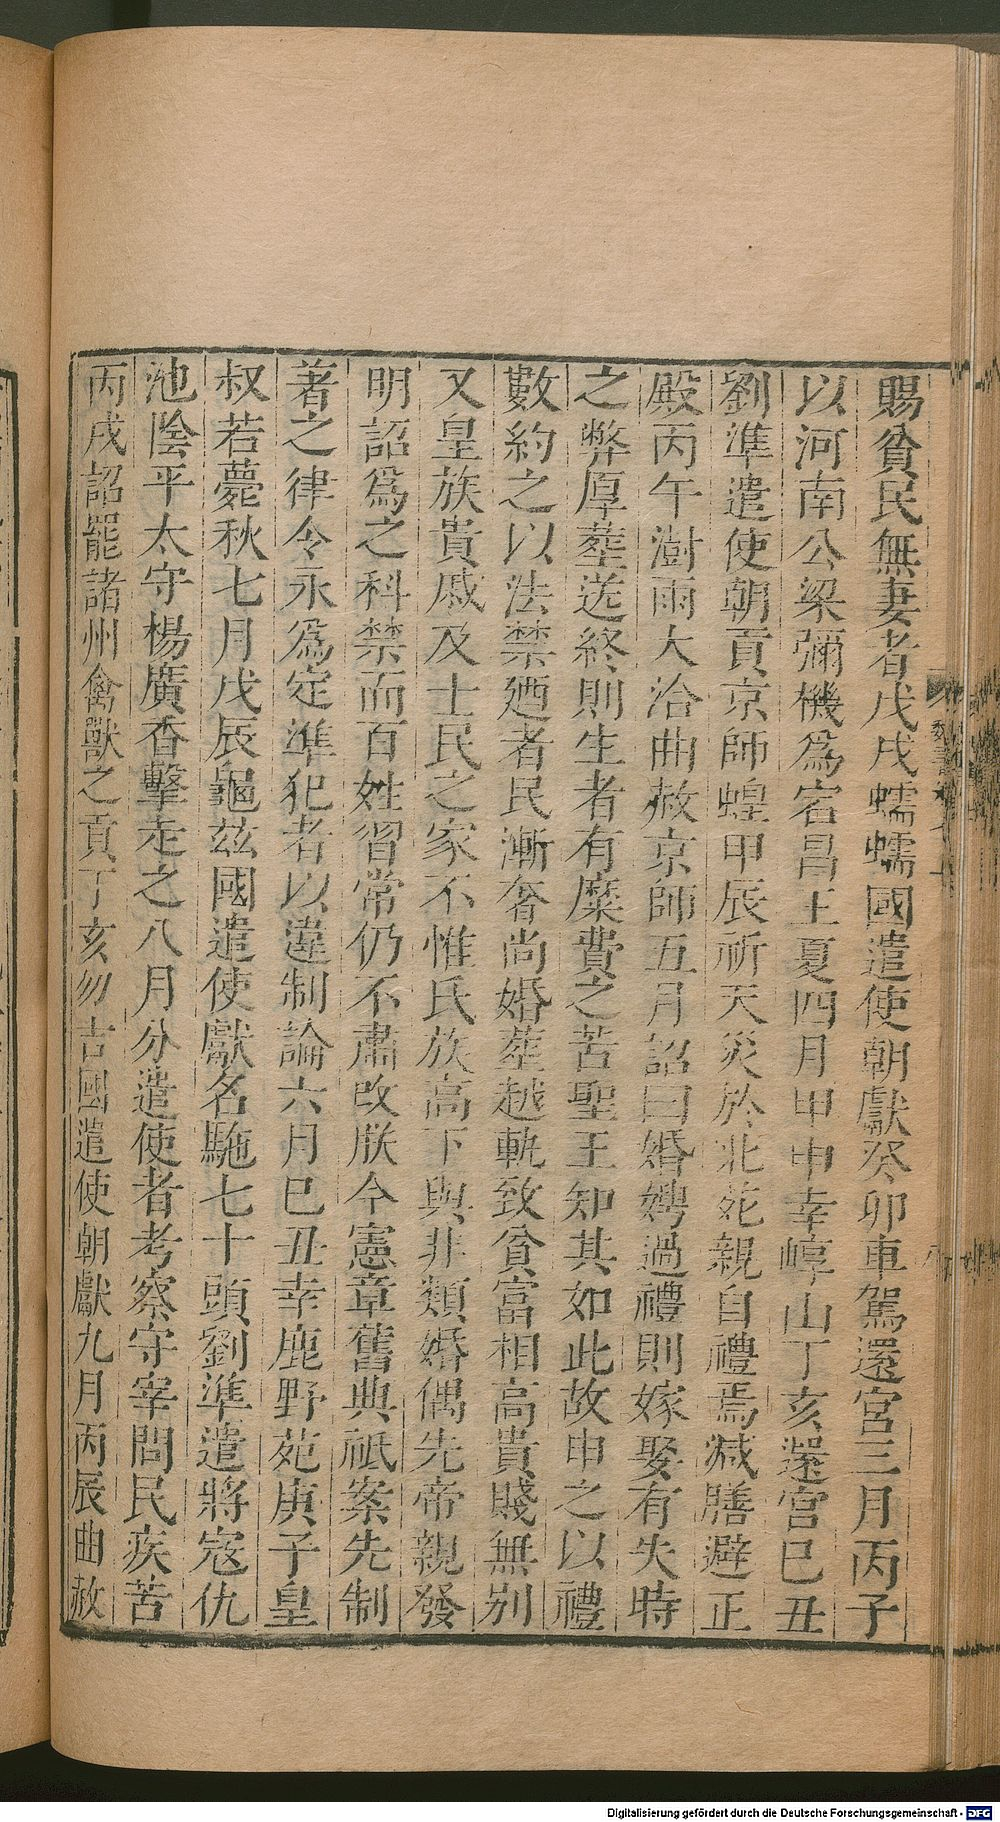 賜貧民無妻者戊戌蠕蠕國遣使朝獻癸卯車駕還宮三月丙子
以河南公梁彌機爲宕昌王夏四月甲申幸崞山丁亥還宮巳丑
劉準遣使朝貢京師蝗甲辰祈天災於北苑親自禮焉減膳避正
殿丙午澍雨大洽曲赦京師五月詔曰婚娉過禮則嫁娶有失時
之弊厚葬送終則生者有糜費之苦聖王知其如此故申之以禮
數約之以法禁廼者民漸奢尚婚葬越軌致貧富相高貴賤無別
又皇族貴戚及士民之家不惟氏族高下與非類婚偶先帝親發
明詔爲之科禁而百姓習常仍不肅改朕今憲章舊典祇案先制
著之律令永爲定準犯者以違制論六月巳丑幸鹿野苑庚子皇
叔若薨秋七月戊辰龜茲國遣使獻名駞七十頭劉準遣將寇仇
池陰平太守楊廣香擊走之八月分遣使者考察守宰問民疾苦
丙戌詔罷諸州禽獸之貢丁亥勿吉國遣使朝獻九月丙辰曲赦
魏書
八
Digitalisierung gefördert durch die Deutsche Forschungsgemeinschaft - DFG